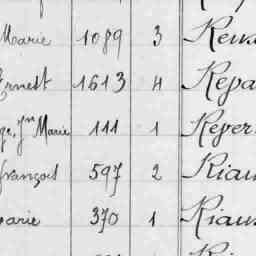 Marie 1089 3
Ernest 1613 4 Repa
Jn Marie 111 1 Reper
françois 597 2 Riau
arie 370 1 Riau